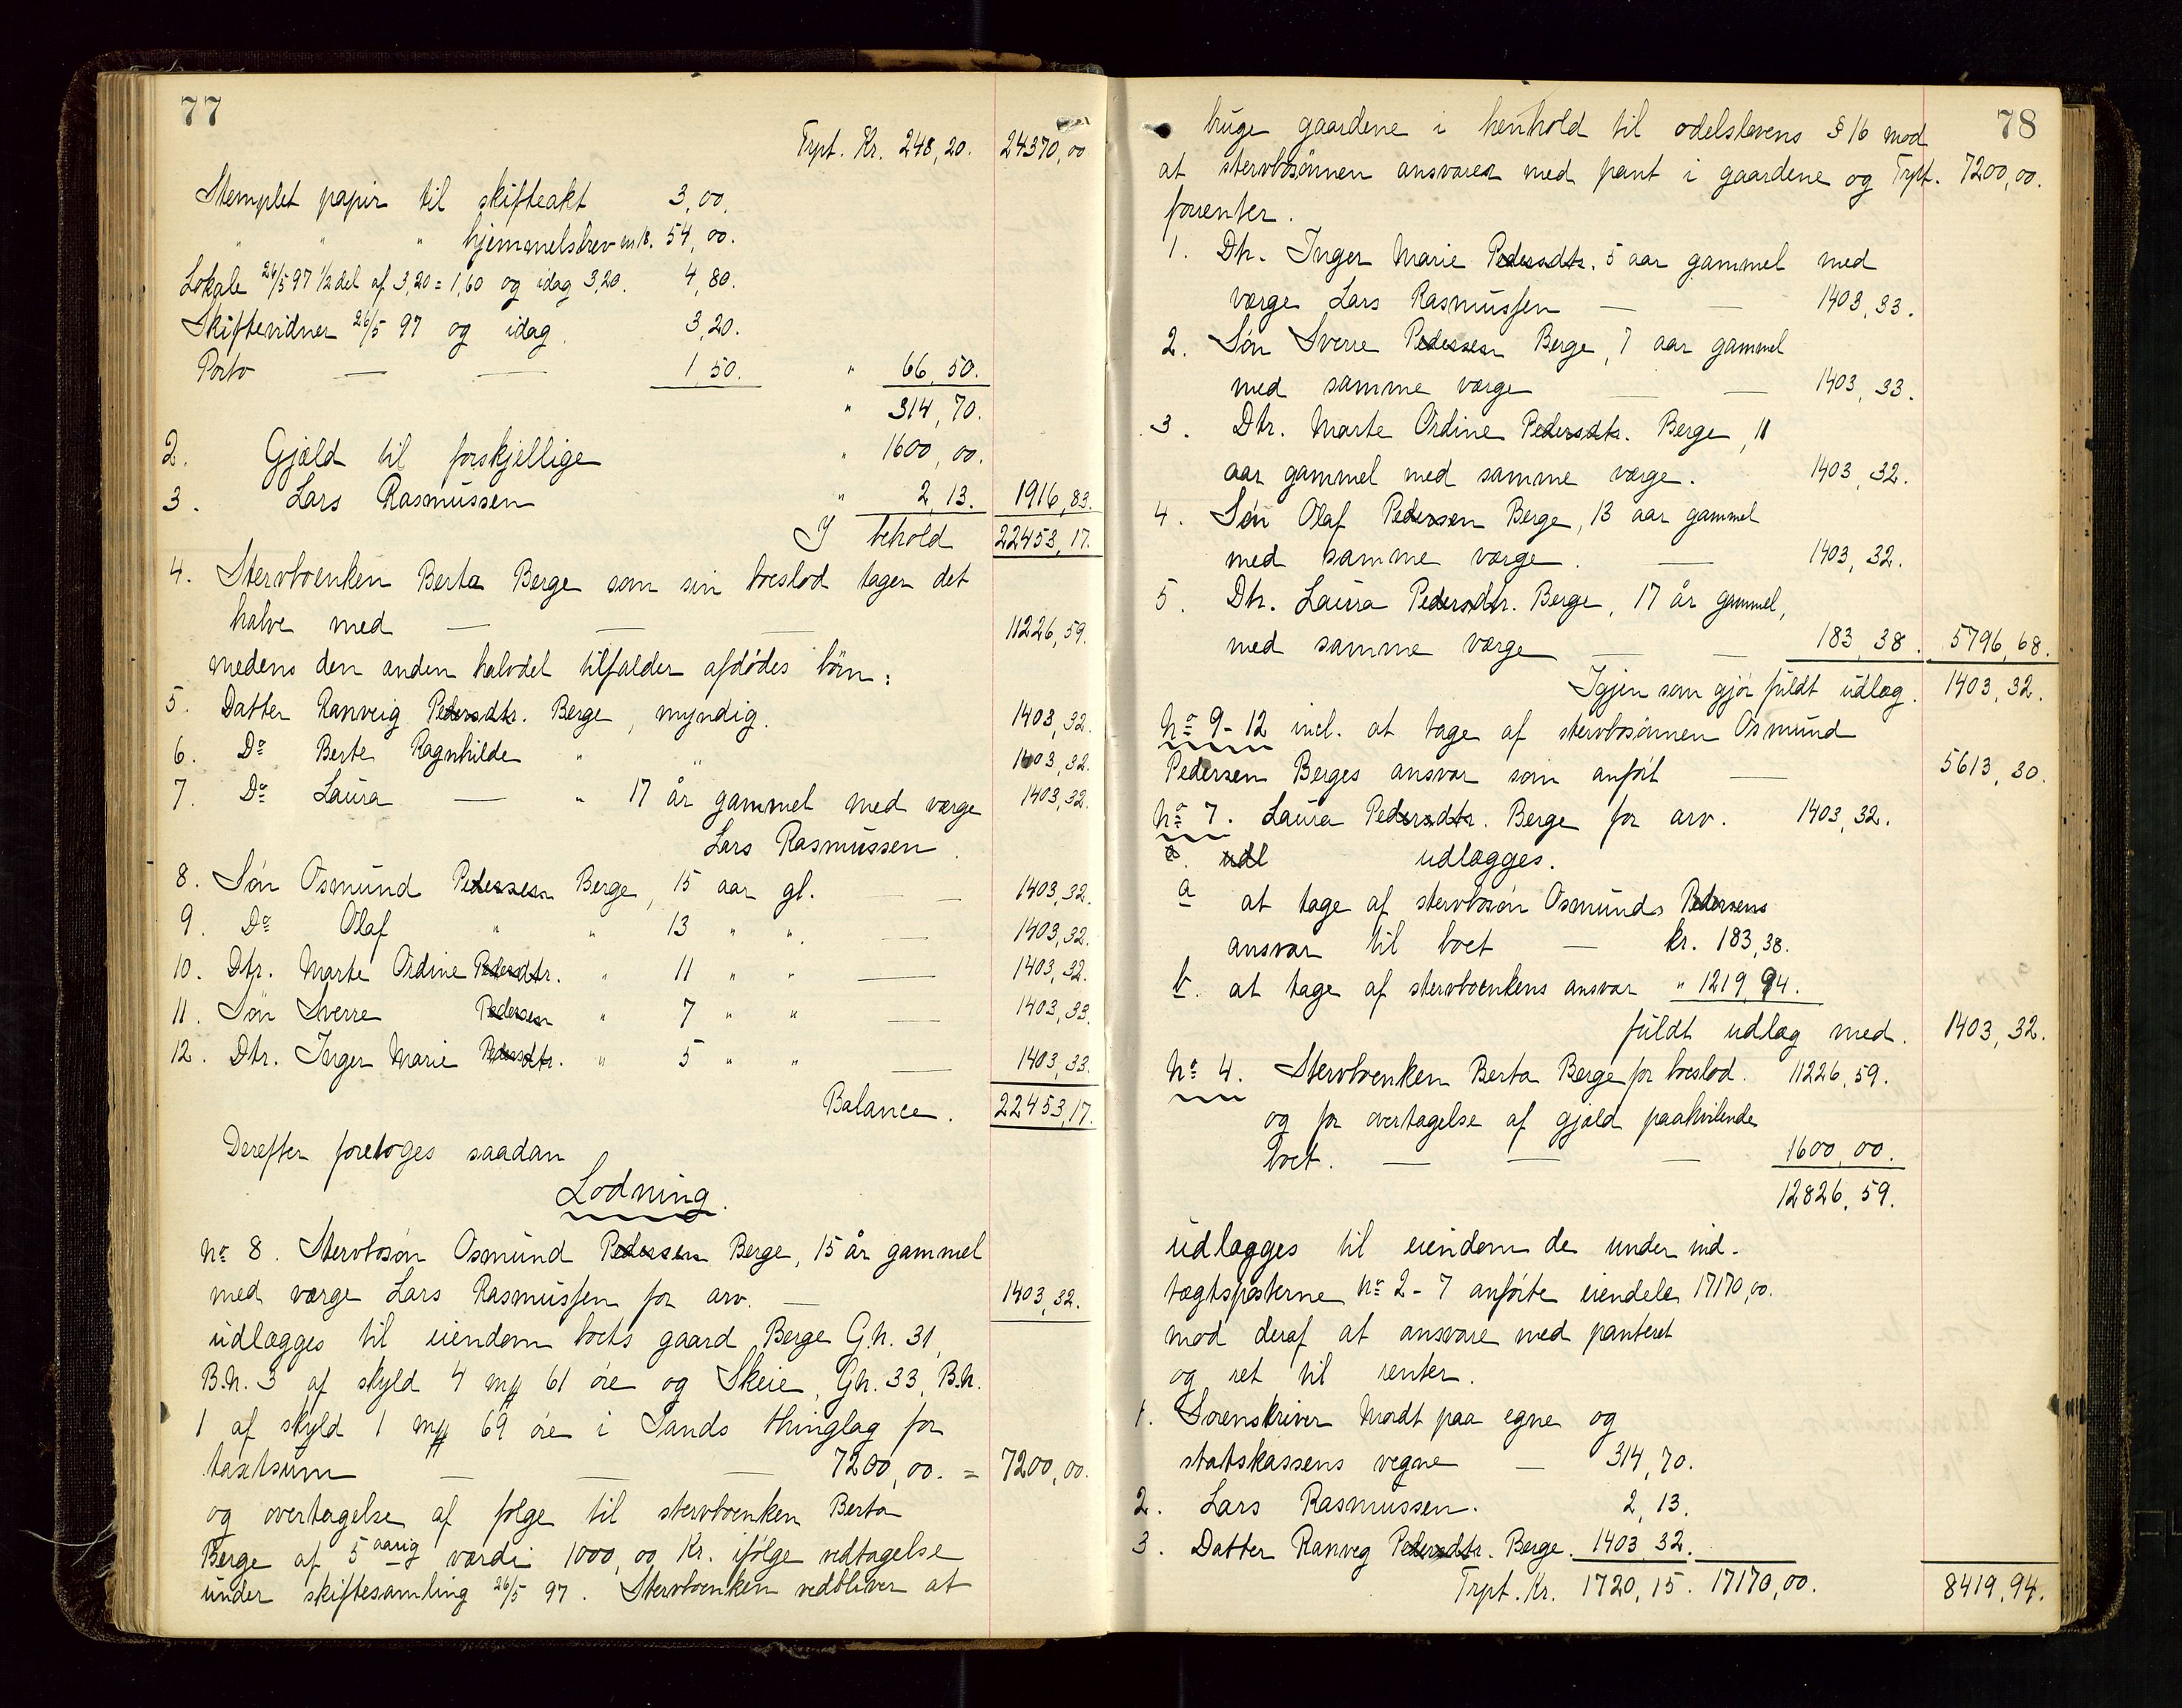 77
Trpt. Kr. 248,20. 24370,00
Stemplet papir til skifteakt 3,00.
" " " hjemmelsbrev m/b. 54,00.
Lokale 26/5 97 1/2 del af 3,20 = 1,60 og idag 3,20. 4,80.
Skiftevidner 26/5 97 og idag. 3,20.
Porto — — 1,50. " 66,50.
" 314,70.
2. Gjæld til forskjellige " 1600,00.
3. Lars Rasmussen " 2,13. 1916,83.
I behold 22453,17.
4. Stervboenken Berta Berge som sin boeslod tager det
halve med — — — 11226,59.
medens den anden halvdel tilfalder afdødes börn:
5. Datter Ranveig Pedersdtr. Berge, myndig. 1403,32.
6. Do Berte Ragnhilde " " 1403,32.
7. Do Laura — " 17 år gammel med værge 1403,32.
Lars Rasmussen.
8. Sön Osmund Pedersen Berge, 15 aar gl. — — 1403,32.
9. Do Olaf " " 13 " ". — 1403,32.
10. Dtr. Marte Ordine Pedersdtr. " 11 " " — 1403,32.
11. Sön Sverre Pedersen " 7 " " — 1403,33.
12. Dtr. Inger Marie Pedersdtr. " 5 " " — 1403,33.
Balance. 22453,17.
Derefter foretoges saadan
Lodning.
No 8. Stervbosön Osmund Pedersen Berge, 15 år gammel
med værge Lars Rasmussen for arv. — 1403,32.
udlægges til eiendom boets gaard Berge G.n. 31,
B.n. 3 af skyld 4 mk 61 öre og Skeie, Gn. 33, B.n.
1 af skyld 1 mk 69 öre i Sands thinglag for
taxtsum — — — 7200,00. = 7200,00.
og overtagelse af folge til stervboenken Berta
Berge af 5 aarig værdi 1000,00 Kr. ifölge vedtagelse
under skiftesamling 26/5 97. Stervboenken vedbliver at
78
bruge gaardene i henhold til odelslovens § 16 mod
at stervbosönnen ansvarer med pant i gaardene og Trpt. 7200,00.
forrenter.
1. Dtr. Inger Marie Pedersdtr. 5 aar gammel med
værge Lars Rasmussen — — 1403,33.
2. Sön Sverre Pedersen Berge, 7 aar gammel
med samme værge — — 1403,33.
3. Dtr. Marte Ordine Pedersdtr. Berge, 11
aar gammel med samme værge. 1403,32.
4. Sön Olaf Pedersen Berge, 13 aar gammel
med samme værge. — 1403,32.
5. Dtr. Laura Pedersdtr. Berge, 17 år gammel,
med samme værge — — 183,38. 5796,68.
Igjen som gjör fuldt udlæg. 1403,32.
No 9-12 incl. at tage af stervbosönnen Osmund
Pedersen Berges ansvar som anfört — 5613,30.
No 7. Laura Pedersdtr. Berge for arv. 1403,32.
a. udl udlægges.
a at tage af stervbosön Osmunds Pedersens
ansvar til boet — kr. 183,38.
b. at tage af stervboenkens ansvar " 1219,94.
fuldt udlæg med. 1403,32.
No 4. Stervboenken Berta Berge for boeslod. 11226,59.
og for overtagelse af gjæld paahvilende
boet. — — — 1600,00.
12826,59.
udlægges til eiendom de under ind-
tægtsposterne No 2-7 anförte eiendele 17170,00.
mod deraf at ansvare med panteret
og ret til renter.
1. Sorenskriver Mordt paa egne og
statskassens vegne — 314,70.
2. Lars Rasmussen. 2,13.
3. Datter Ranveg Pedersdtr. Berge. 1403,32.
Trpt. Kr. 1720,15. 17170,00. 8419,94.